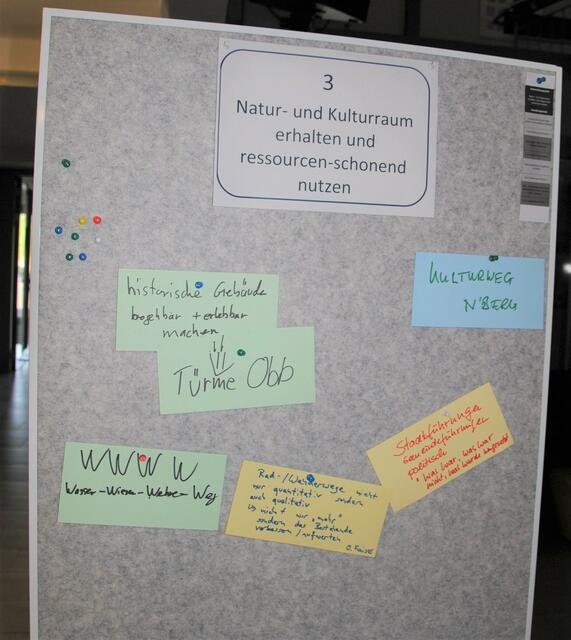 3
Natur- und Kulturraum
erhalten und
ressourcen-schonend
nutzen
KULTURWEG
N'BERG
historische Gebäude
begehbar + erlebbar
machen
Türme Obb
Stadtführungen
Gemeindeführungen
politisch
"was war, was war
nicht, was wurde
WWWW
Wasser-Wiesen-Weber-Weg
Rad-/Wanderwege nicht
nur quantitativ sondern
auch qualitativ
nicht nur "mehr"
sondern das Bestehende
verbessern/aufwerten